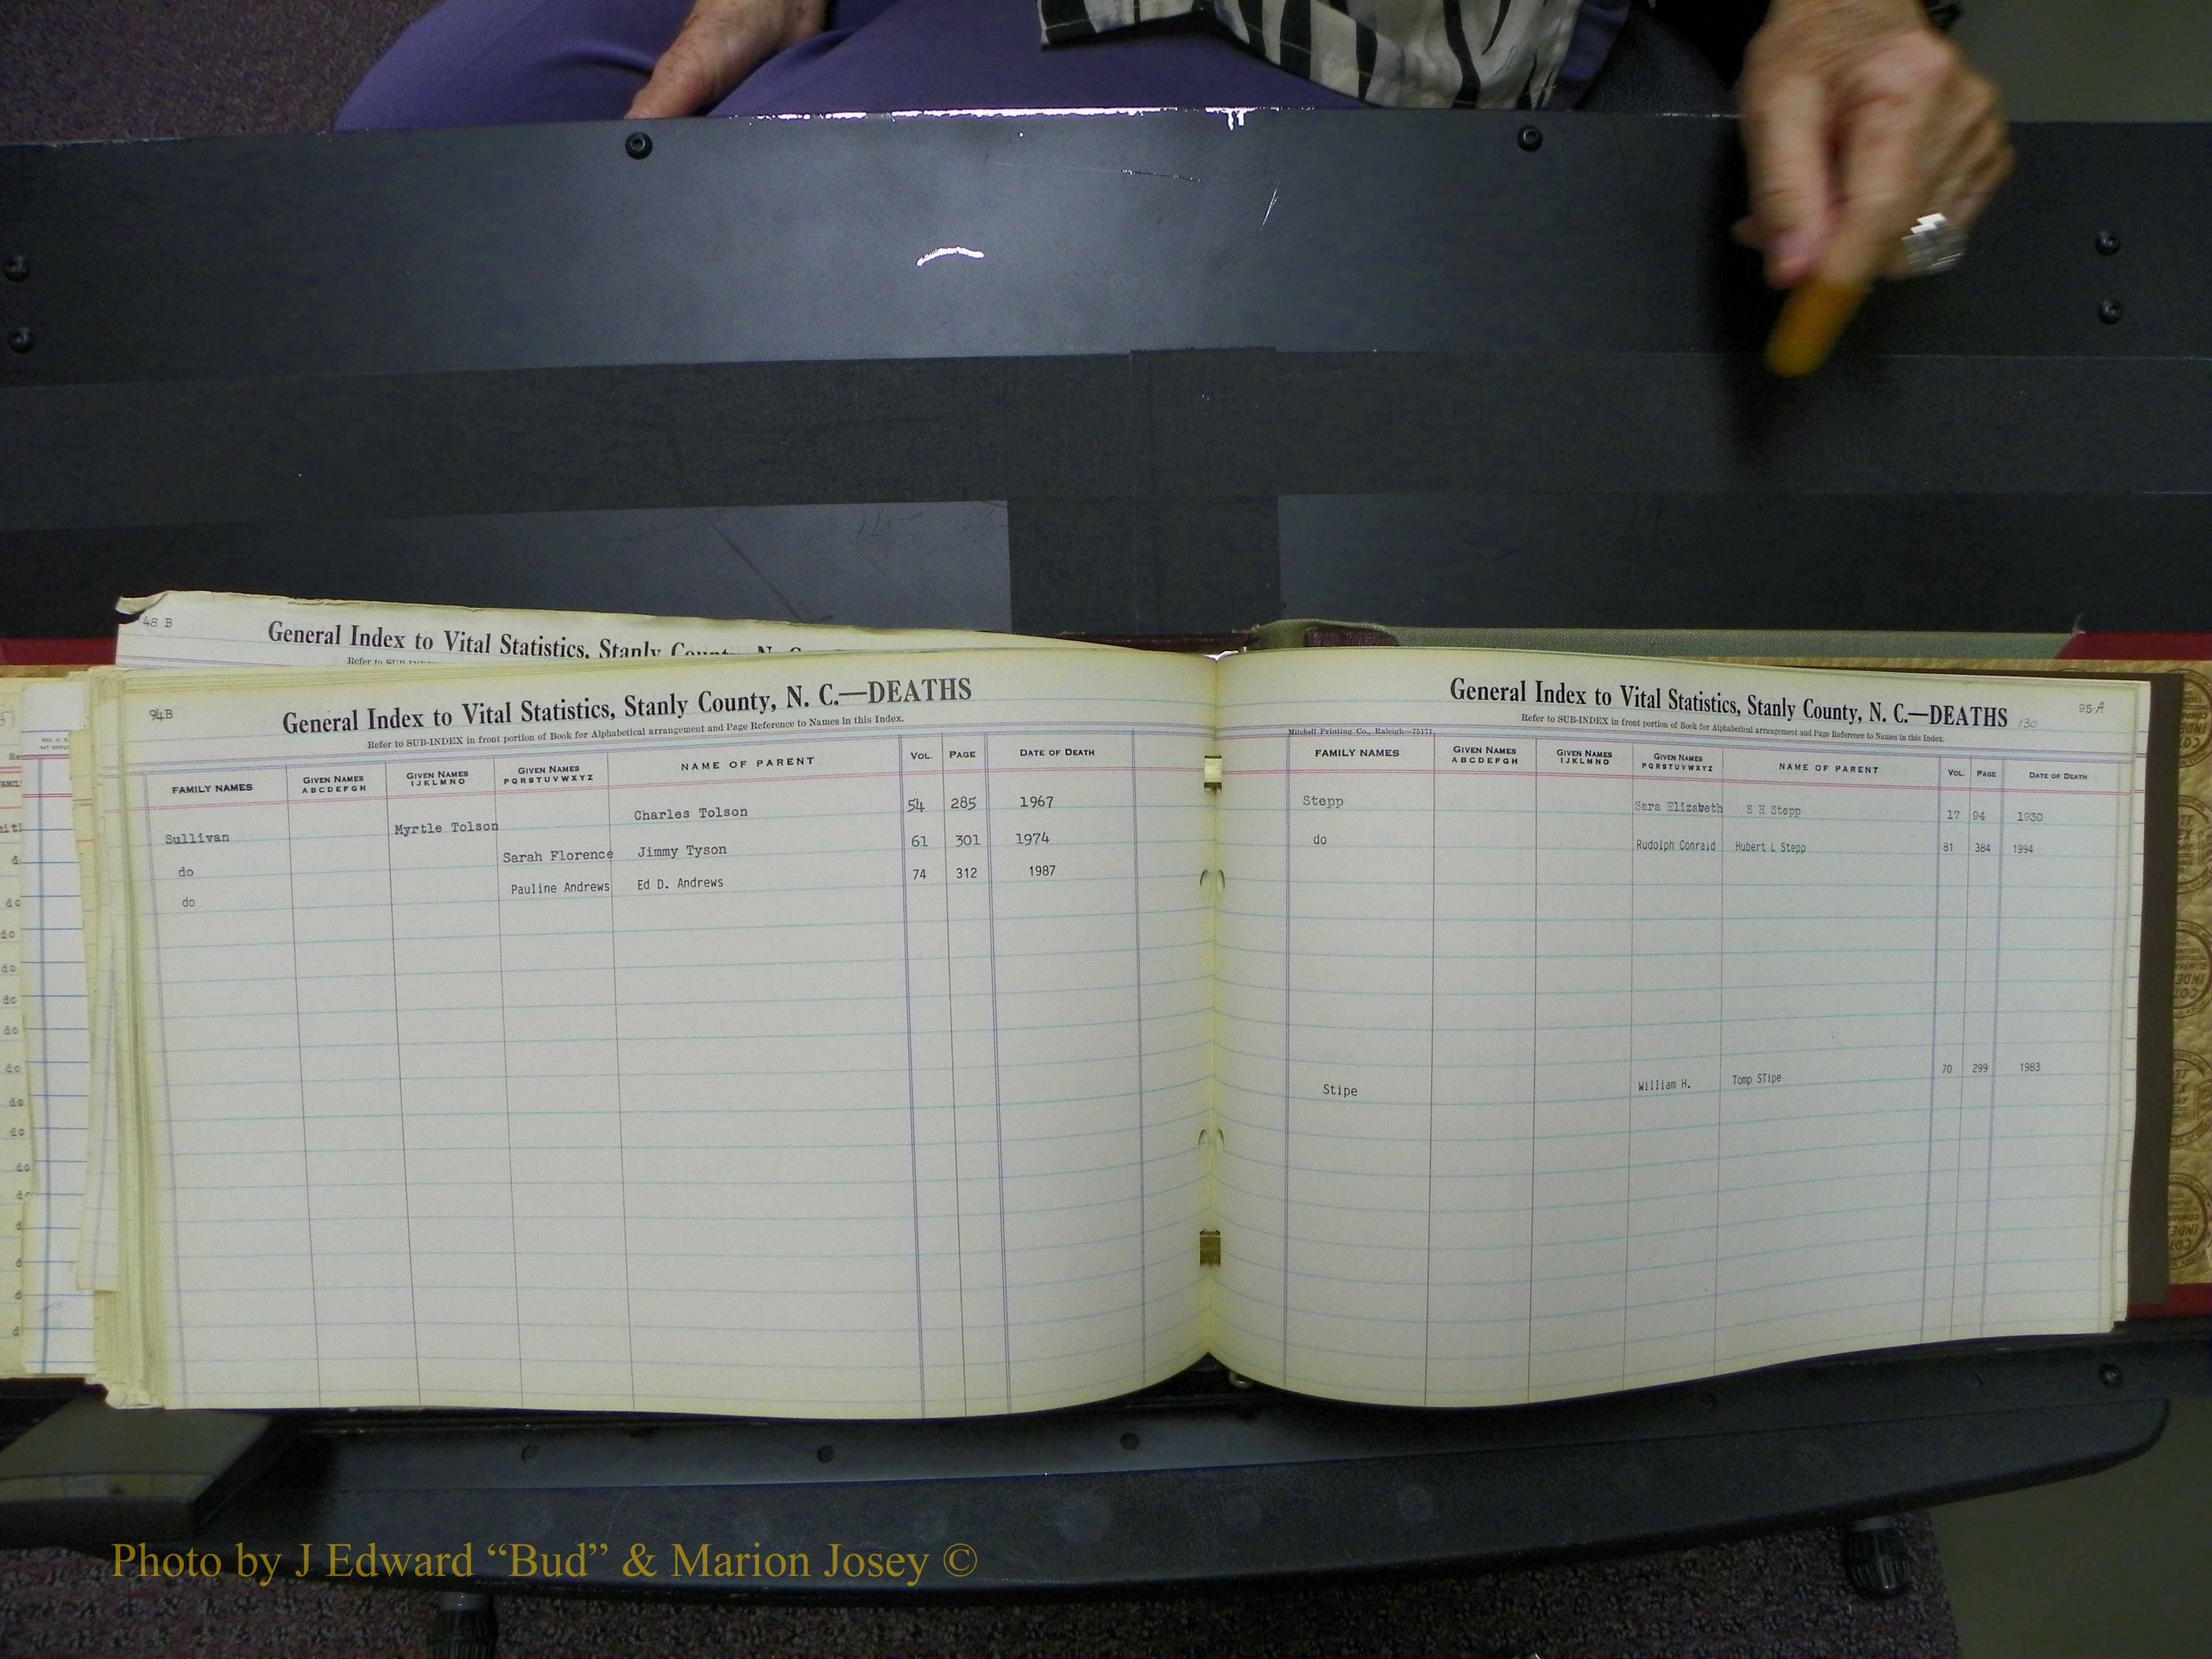 48 B
General Index to Vital Statistics, Stanly County, N. C.
94B
General Index to Vital Statistics, Stanly County, N. C.—DEATHS
Refer to SUB-INDEX in front portion of Book for Alphabetical arrangement and Page Reference to Names in this Index.
FAMILY NAMES GIVEN NAMES ABCDEFGH GIVEN NAMES IJKLMNO GIVEN NAMES PQRSTUVWXYZ NAME OF PARENT VOL. PAGE DATE OF DEATH
Sullivan Myrtle Tolson Charles Tolson 54 285 1967
do Sarah Florence Jimmy Tyson 61 301 1974
do Pauline Andrews Ed D. Andrews 74 312 1987
General Index to Vital Statistics, Stanly County, N. C.—DEATHS 130 95-A
Refer to SUB-INDEX in front portion of Book for Alphabetical arrangement and Page Reference to Names in this Index.
Mitchell Printing Co., Raleigh—75171
FAMILY NAMES GIVEN NAMES ABCDEFGH GIVEN NAMES IJKLMNO GIVEN NAMES PQRSTUVWXYZ NAME OF PARENT VOL. PAGE DATE OF DEATH
Stepp Sara Elizabeth S H Stepp 17 94 1930
do Rudolph Conraid Hubert L Stepp 81 384 1994
Stipe William H. Tomp STipe 70 299 1983
Photo by J Edward “Bud” & Marion Josey ©